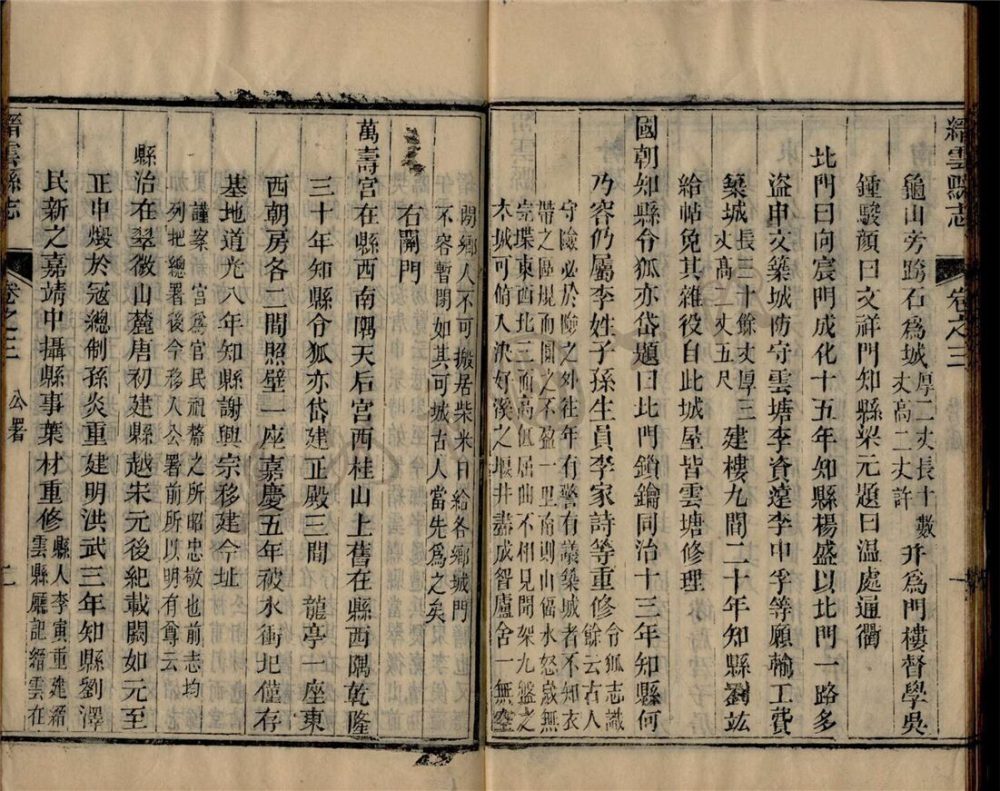 縉雲縣志
卷之三
龜山旁跨石爲城厚二丈長十數丈高二丈許并爲門樓督學吳
鍾駿顏曰文祥門知縣梁元題曰温處通衢
北門曰向宸門成化十五年知縣楊盛以北門一路多
盜申文築城防守雲塘李資遠李中孚等願輸工費
築城長三十餘丈厚三丈高二丈五尺建樓九間二十年知縣劉竑
給帖免其雜役自此城屋皆雲塘修理
國朝知縣令狐亦岱題曰北門鎖鑰同治十三年知縣何
乃容仍屬李姓子孫生員李家詩等重修令狐志識餘云古人
守險必於險之外往年有警有議築城者不知衣
帶之區規而圍之不盈一里南則山偪水怒歲無
完堞東西北三面高低屈曲不相見聞架九盤之
木城可俯人決好溪之堰井盡成智廬舍一無空
閒鄉人不可搬居柴米日給各鄉城門
不容暫閉如其可城古人當先爲之矣
右關門
萬壽宮在縣西南隅天后宮西桂山上舊在縣西隅乾隆
三十年知縣令狐亦岱建正殿三間 龍亭一座東
西朝房各二間照壁一座嘉慶五年被水衝圮僅存
基地道光八年知縣謝興宗移建今址
謹案 宮爲官民祖釐之所昭忠敬也前志均
列把總署後今移入公署前所以明有尊云
縣治在翠微山麓唐初建縣越宋元後紀載闕如元至
正中燬於寇總制孫炎重建明洪武三年知縣劉澤
民新之嘉靖中攝縣事葉材重修縣人李寅重建縉雲縣廳記縉雲在
縉雲縣志
卷之三
公署
二